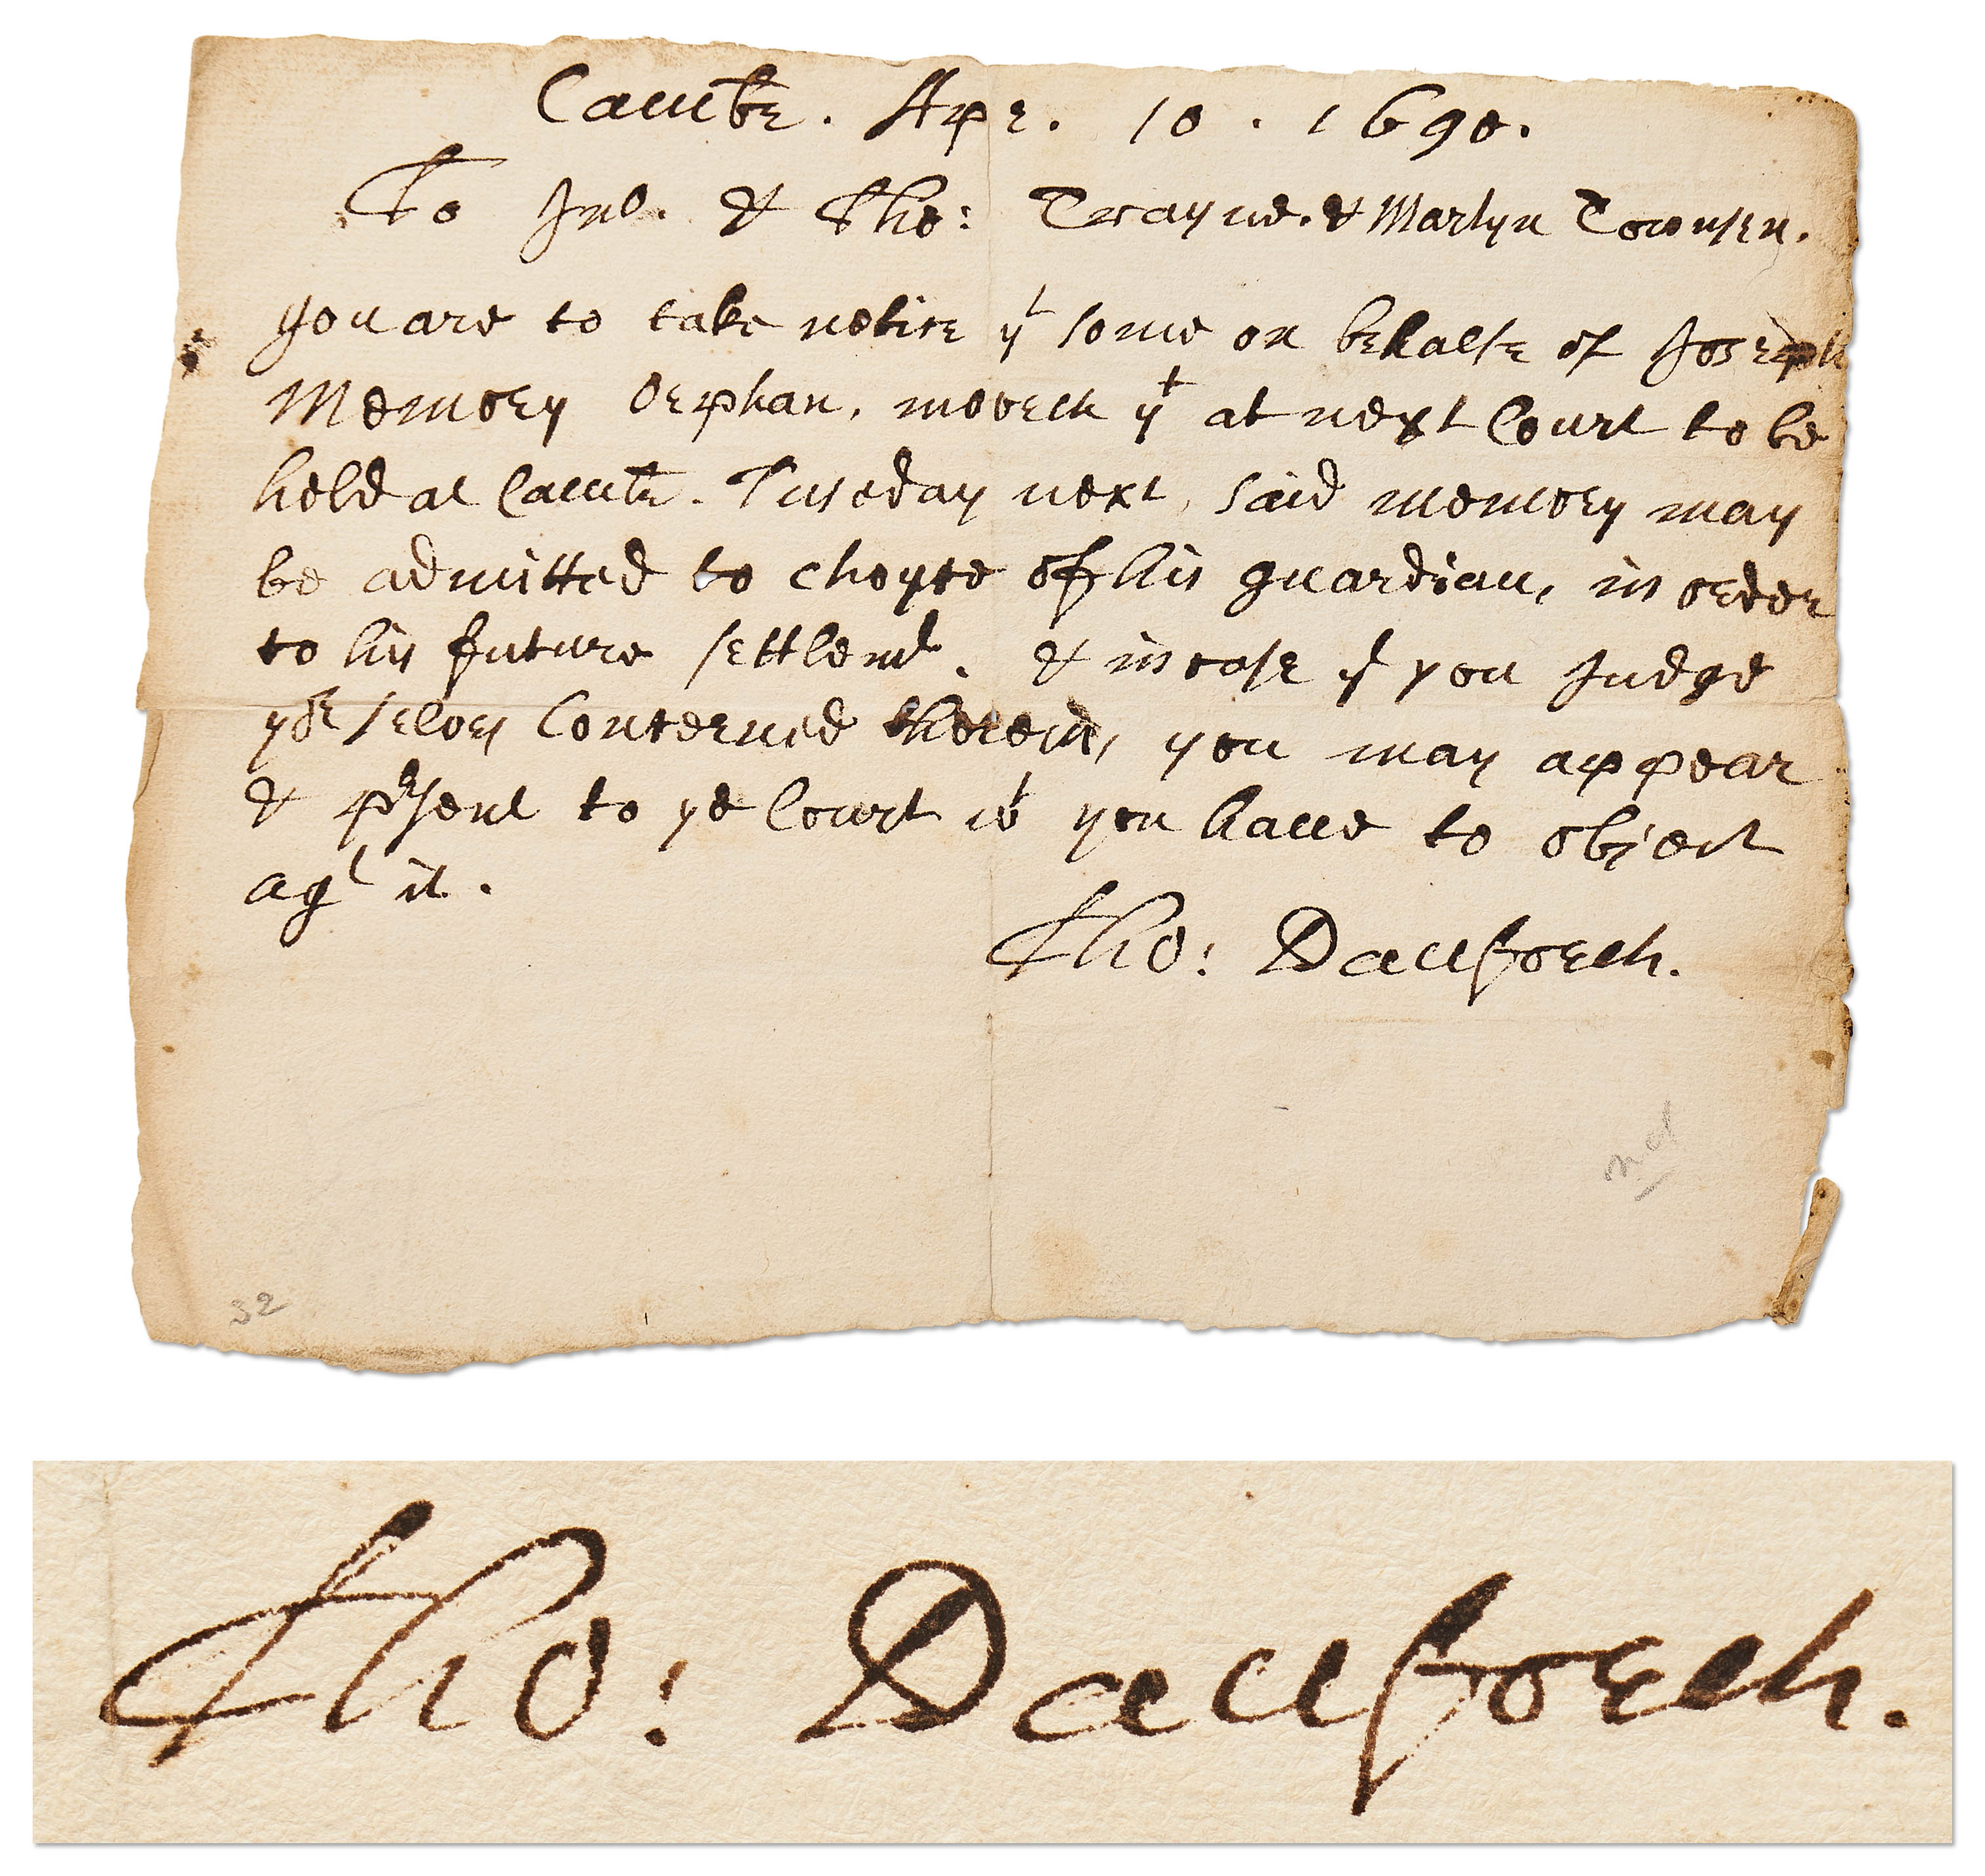 Cambr. Apr. 10. 1690.
To Jno. & Tho: Trayne. & Martyn Townsen.
you are to take notice yt some on behalfe of Joseph
Memory Orphan, moveth yt at next Court to be
held at Cambr. Tuseday next, said memory may
be admitted to choyce of his guardian, in order
to his future settlemt. & in case yt you Judge
yor selves Concerned therein, you may appear
& prsent to ye Court wt you haue to object
agt it.
Tho: Danforth.
32
Tho: Danforth.